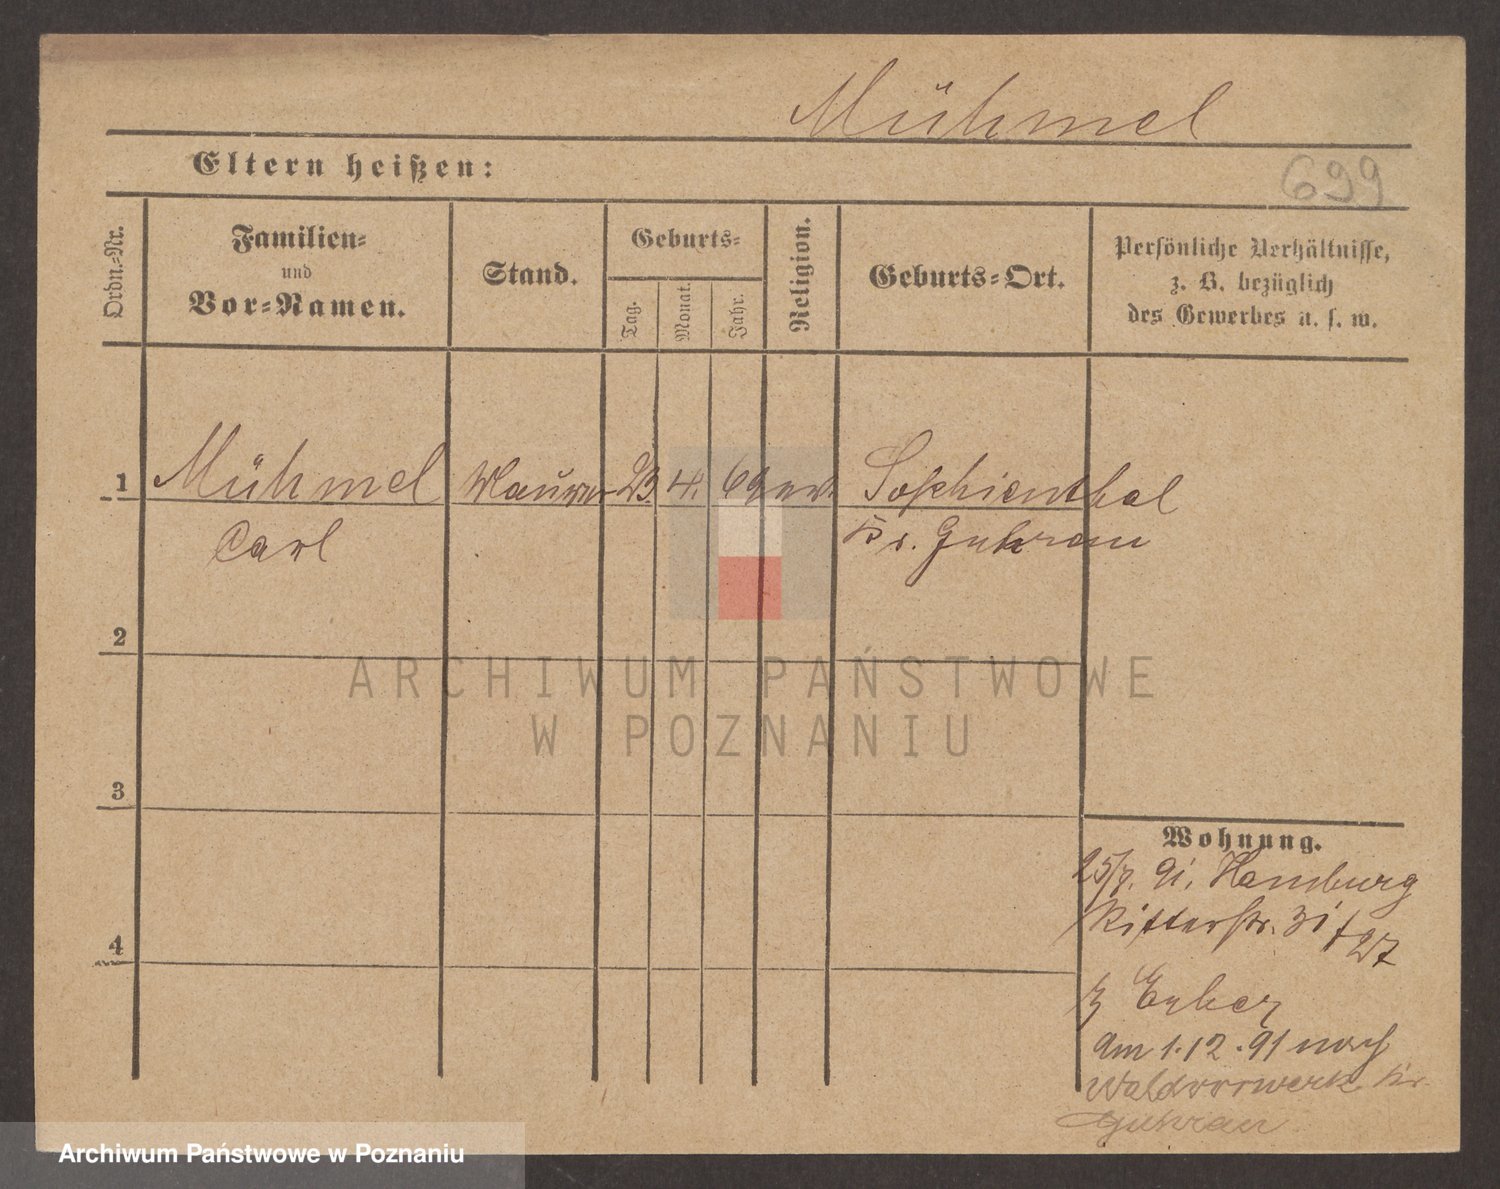 Mühmel
Eltern heißen:
699
Ordn.-Nr.
Familien-
und
Vor-Namen.
Stand.
Geburts-
Tag.
Monat.
Jahr.
Religion.
Geburts-Ort.
Persönliche Verhältnisse,
z. B. bezüglich
des Gewerbes u. s. w.
1 Mühmel Maurer 23 4. 69 ev. Sophienthal
Carl Kr. Guhrau
2
ARCHIWUM PAŃSTWOWE
W POZNANIU
3
Wohnung.
25/7. 91. Hamburg
Ritterstr. 31
4
am 1.12.91 nach
Waldvorwerk Kr.
Guhrau
Archiwum Państwowe w Poznaniu